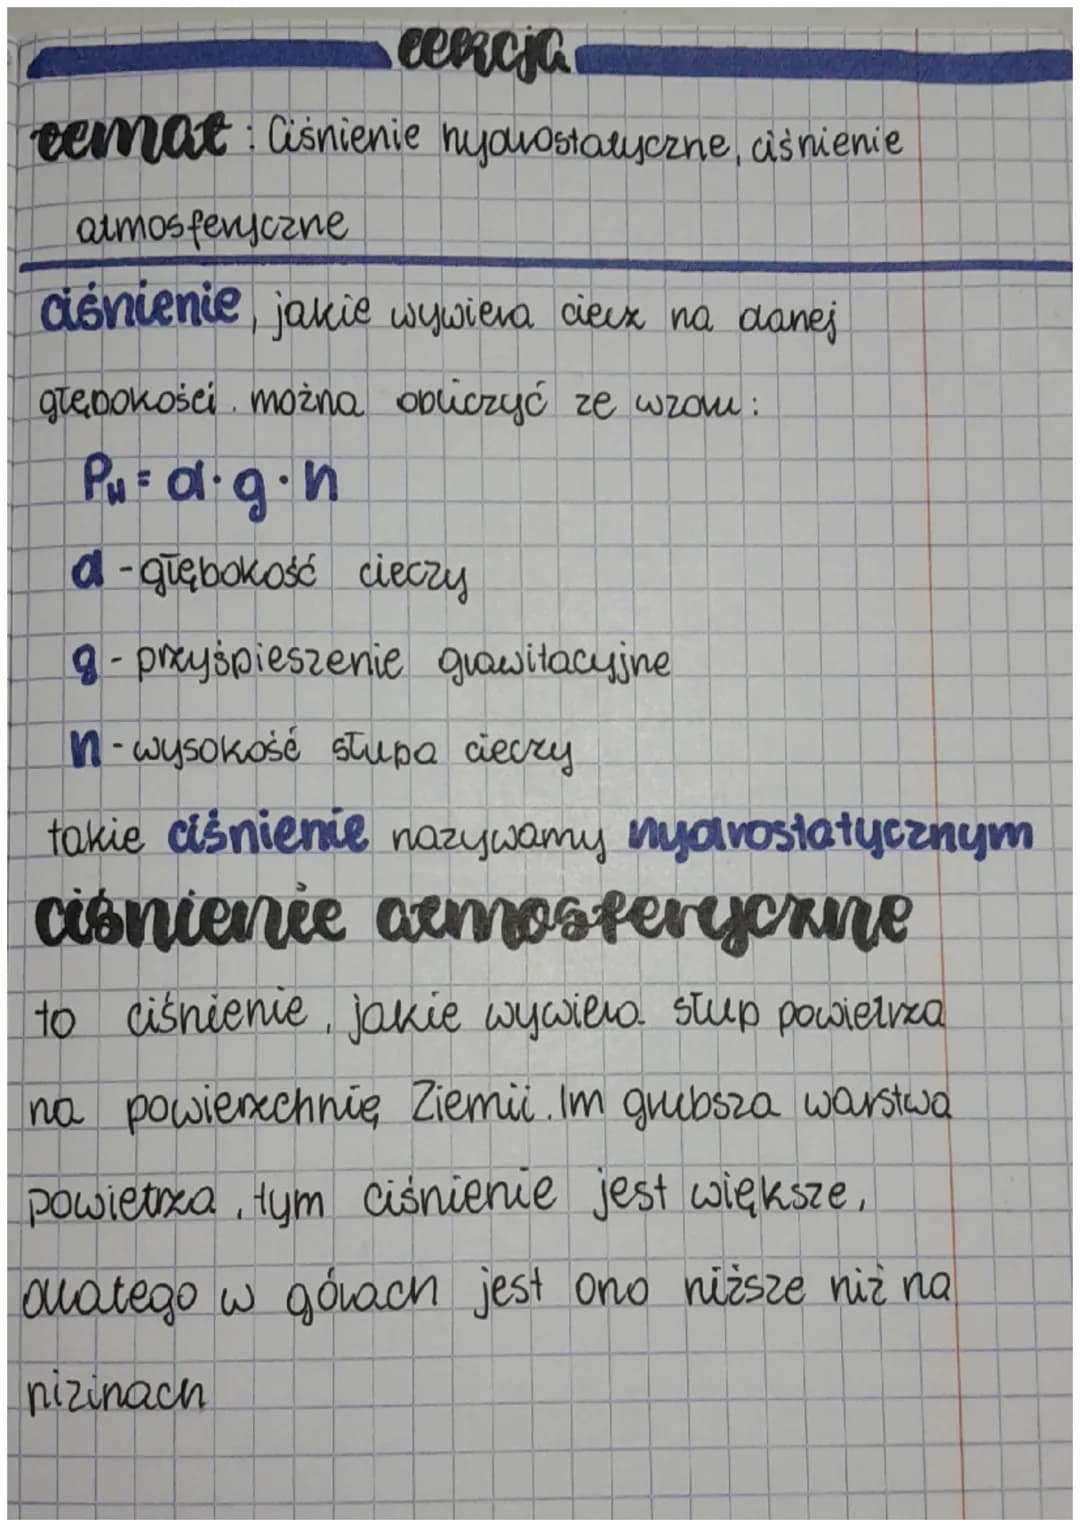 lekcja
temat: Ciśnienie hydrostatyczne, ciśnienie
atmosferyczne
ciśnienie, jakie wywiera ciecz na danej
głębokości. można obliczyć ze wzoru:
PH = d · g · h
d - głębokość cieczy
g - przyśpieszenie grawitacyjne
h - wysokość słupa cieczy
takie ciśnienie nazywamy hydrostatycznym
ciśnienie atmosferyczne
to ciśnienie, jakie wywiera słup powietrza
na powierzchnię Ziemii. Im grubsza warstwa
powietrza, tym ciśnienie jest większe,
dlatego w górach jest ono niższe niż na
nizinach